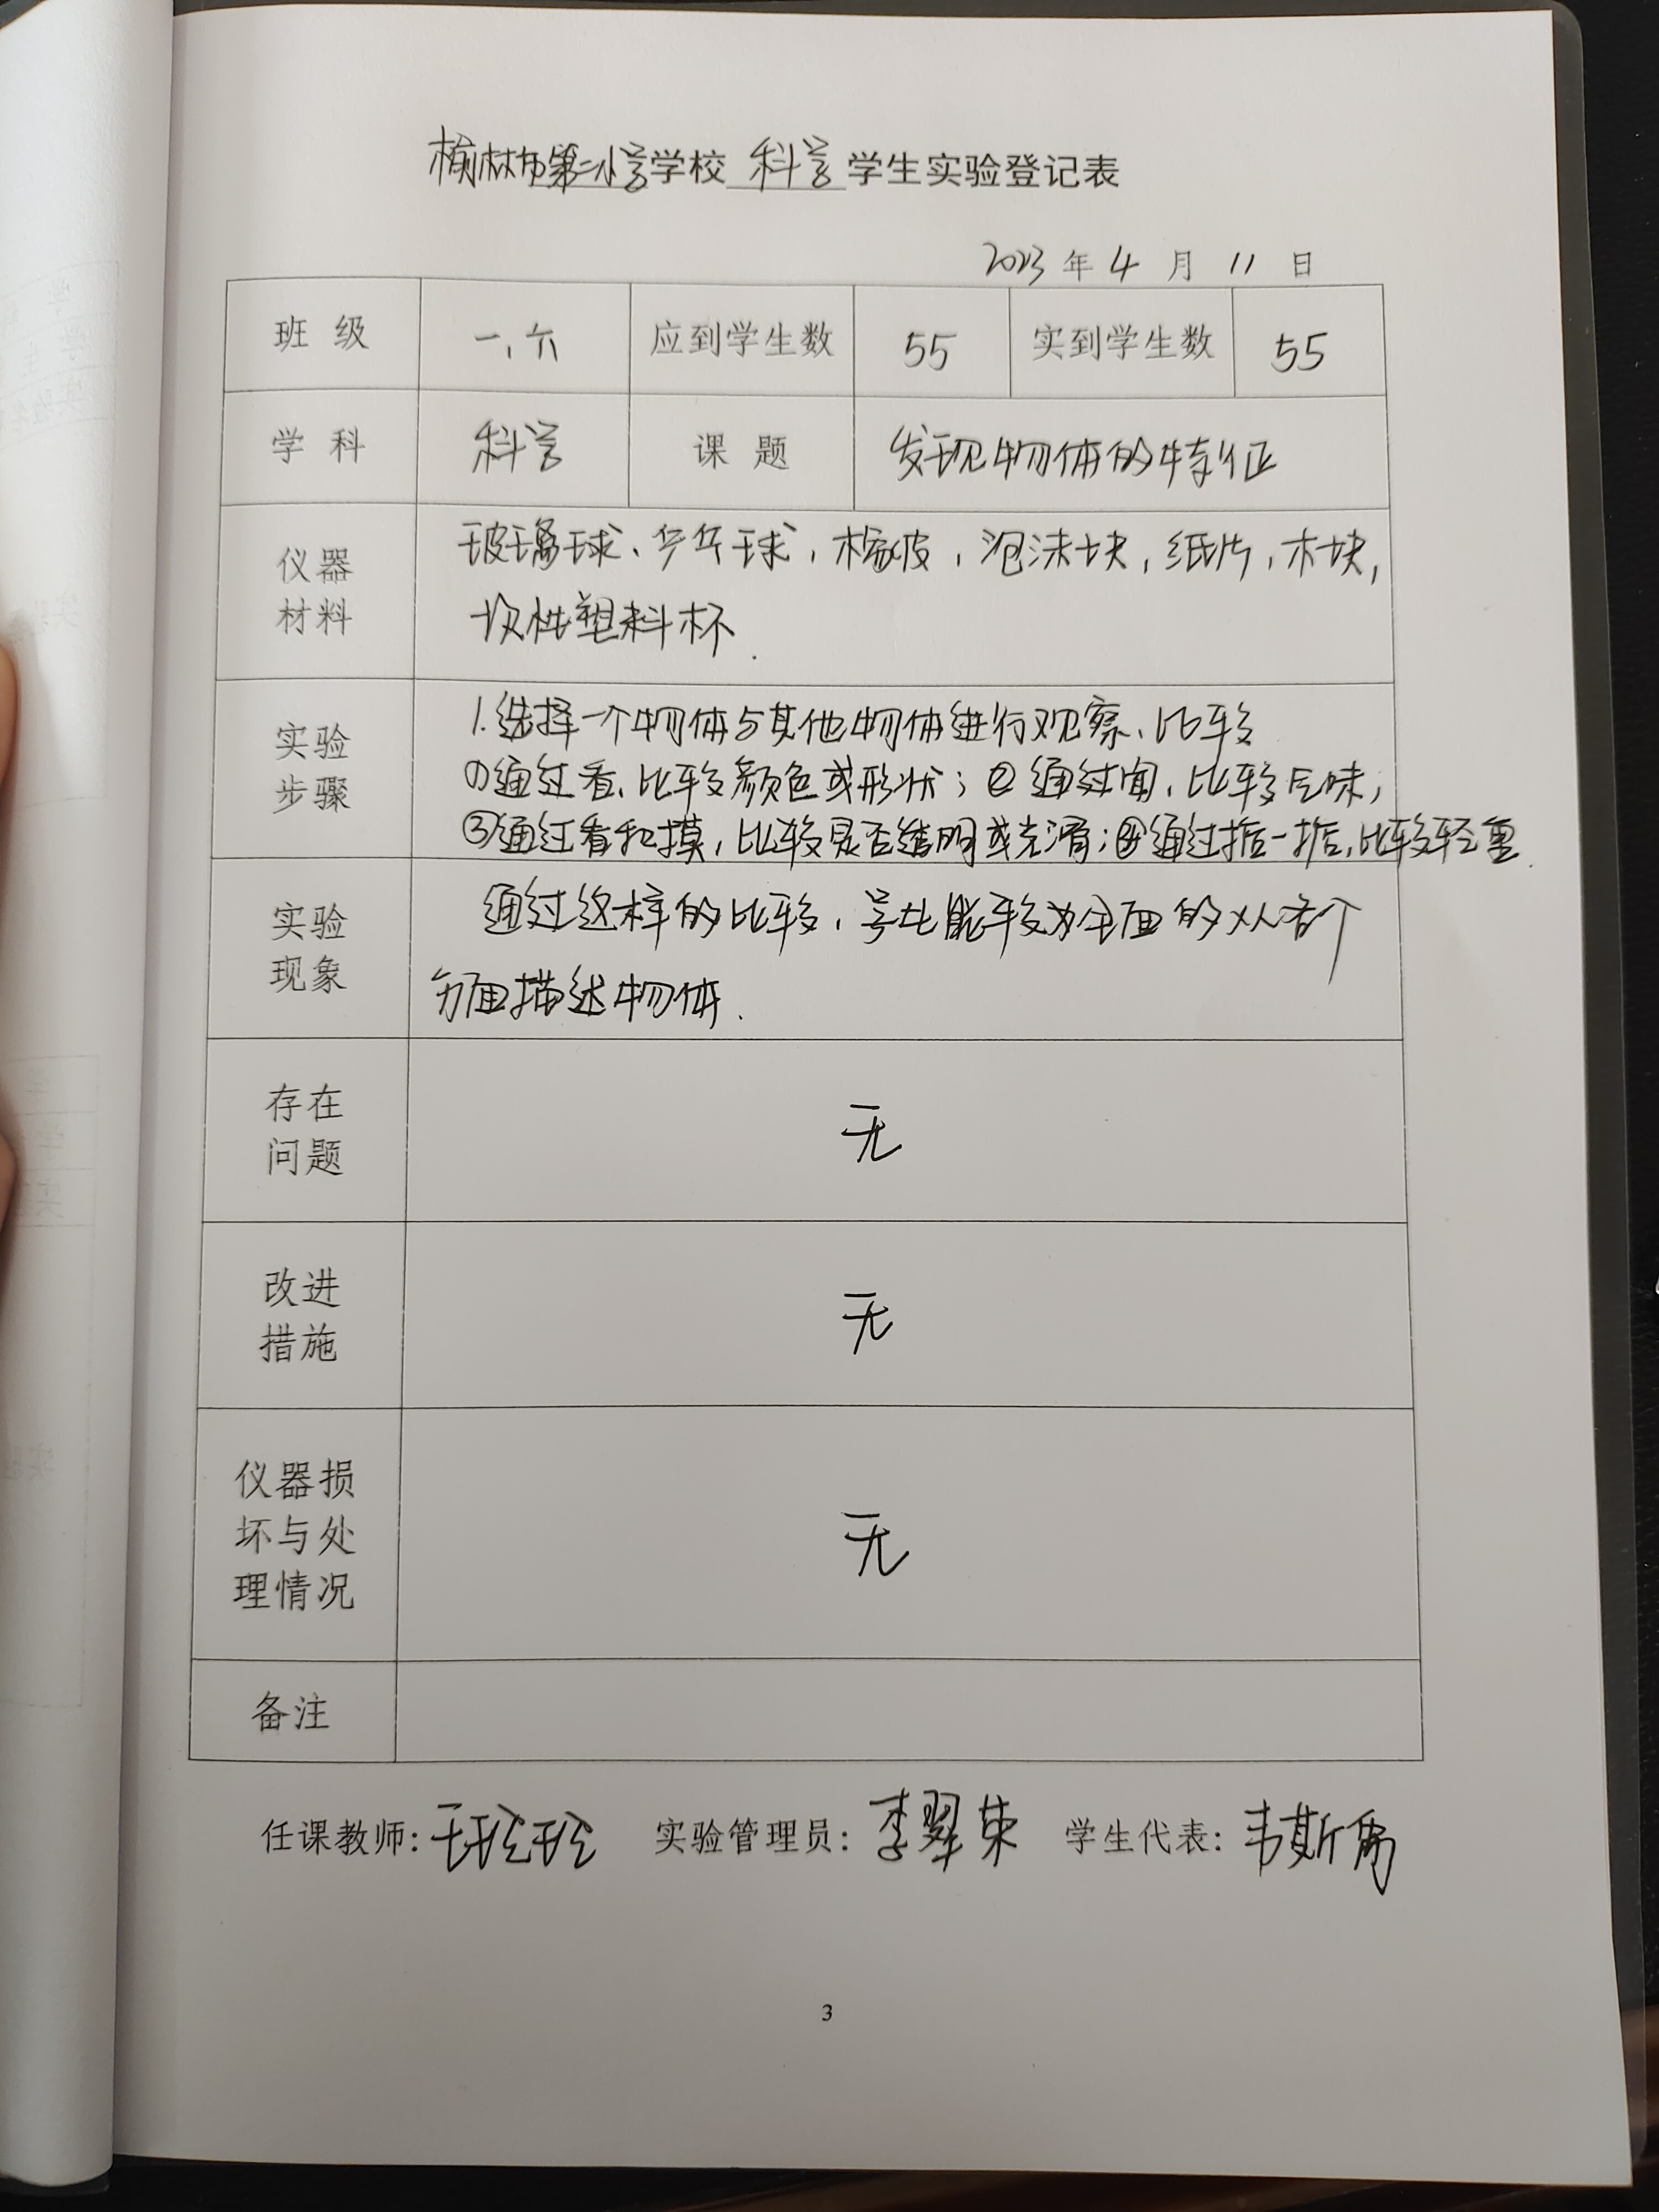 榆林市第二小学学校 科学 学生实验登记表
2023 年 4 月 11 日
班 级 一、六 应到学生数 55 实到学生数 55
学 科 科学 课 题 发现物体的特征
仪器
材料
玻璃球、乒乓球,橡皮,泡沫块,纸片,木块,
次性塑料杯.
实验
步骤
1.选择一个物体与其他物体进行观察、比较
①通过看,比较颜色或形状;②通过闻,比较气味;
③通过看和摸,比较是否透明或光滑;④通过掂一掂,比较轻重.
实验
现象
通过这样的比较,学生能较为全面的从各个
方面描述物体.
存在
问题
无
改进
措施
无
仪器损
坏与处
理情况
无
备注
任课教师: 实验管理员:李翠荣 学生代表:韦斯
3